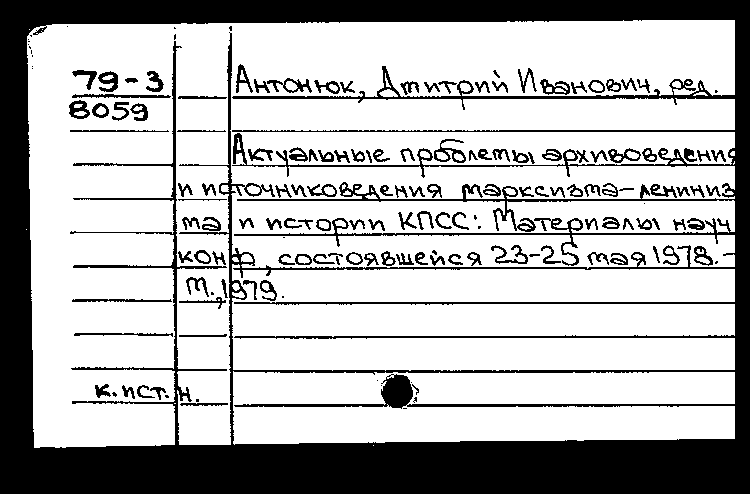 79-3
8059
Антонюк, Дмитрий Иванович, ред.
Актуальные проблемы архивоведения
и источниковедения марксизма-лениниз
ма и истории КПСС: Материалы науч
конф, состоявшейся 23-25 мая 1978.-
М., 1979.
к.ист.н.